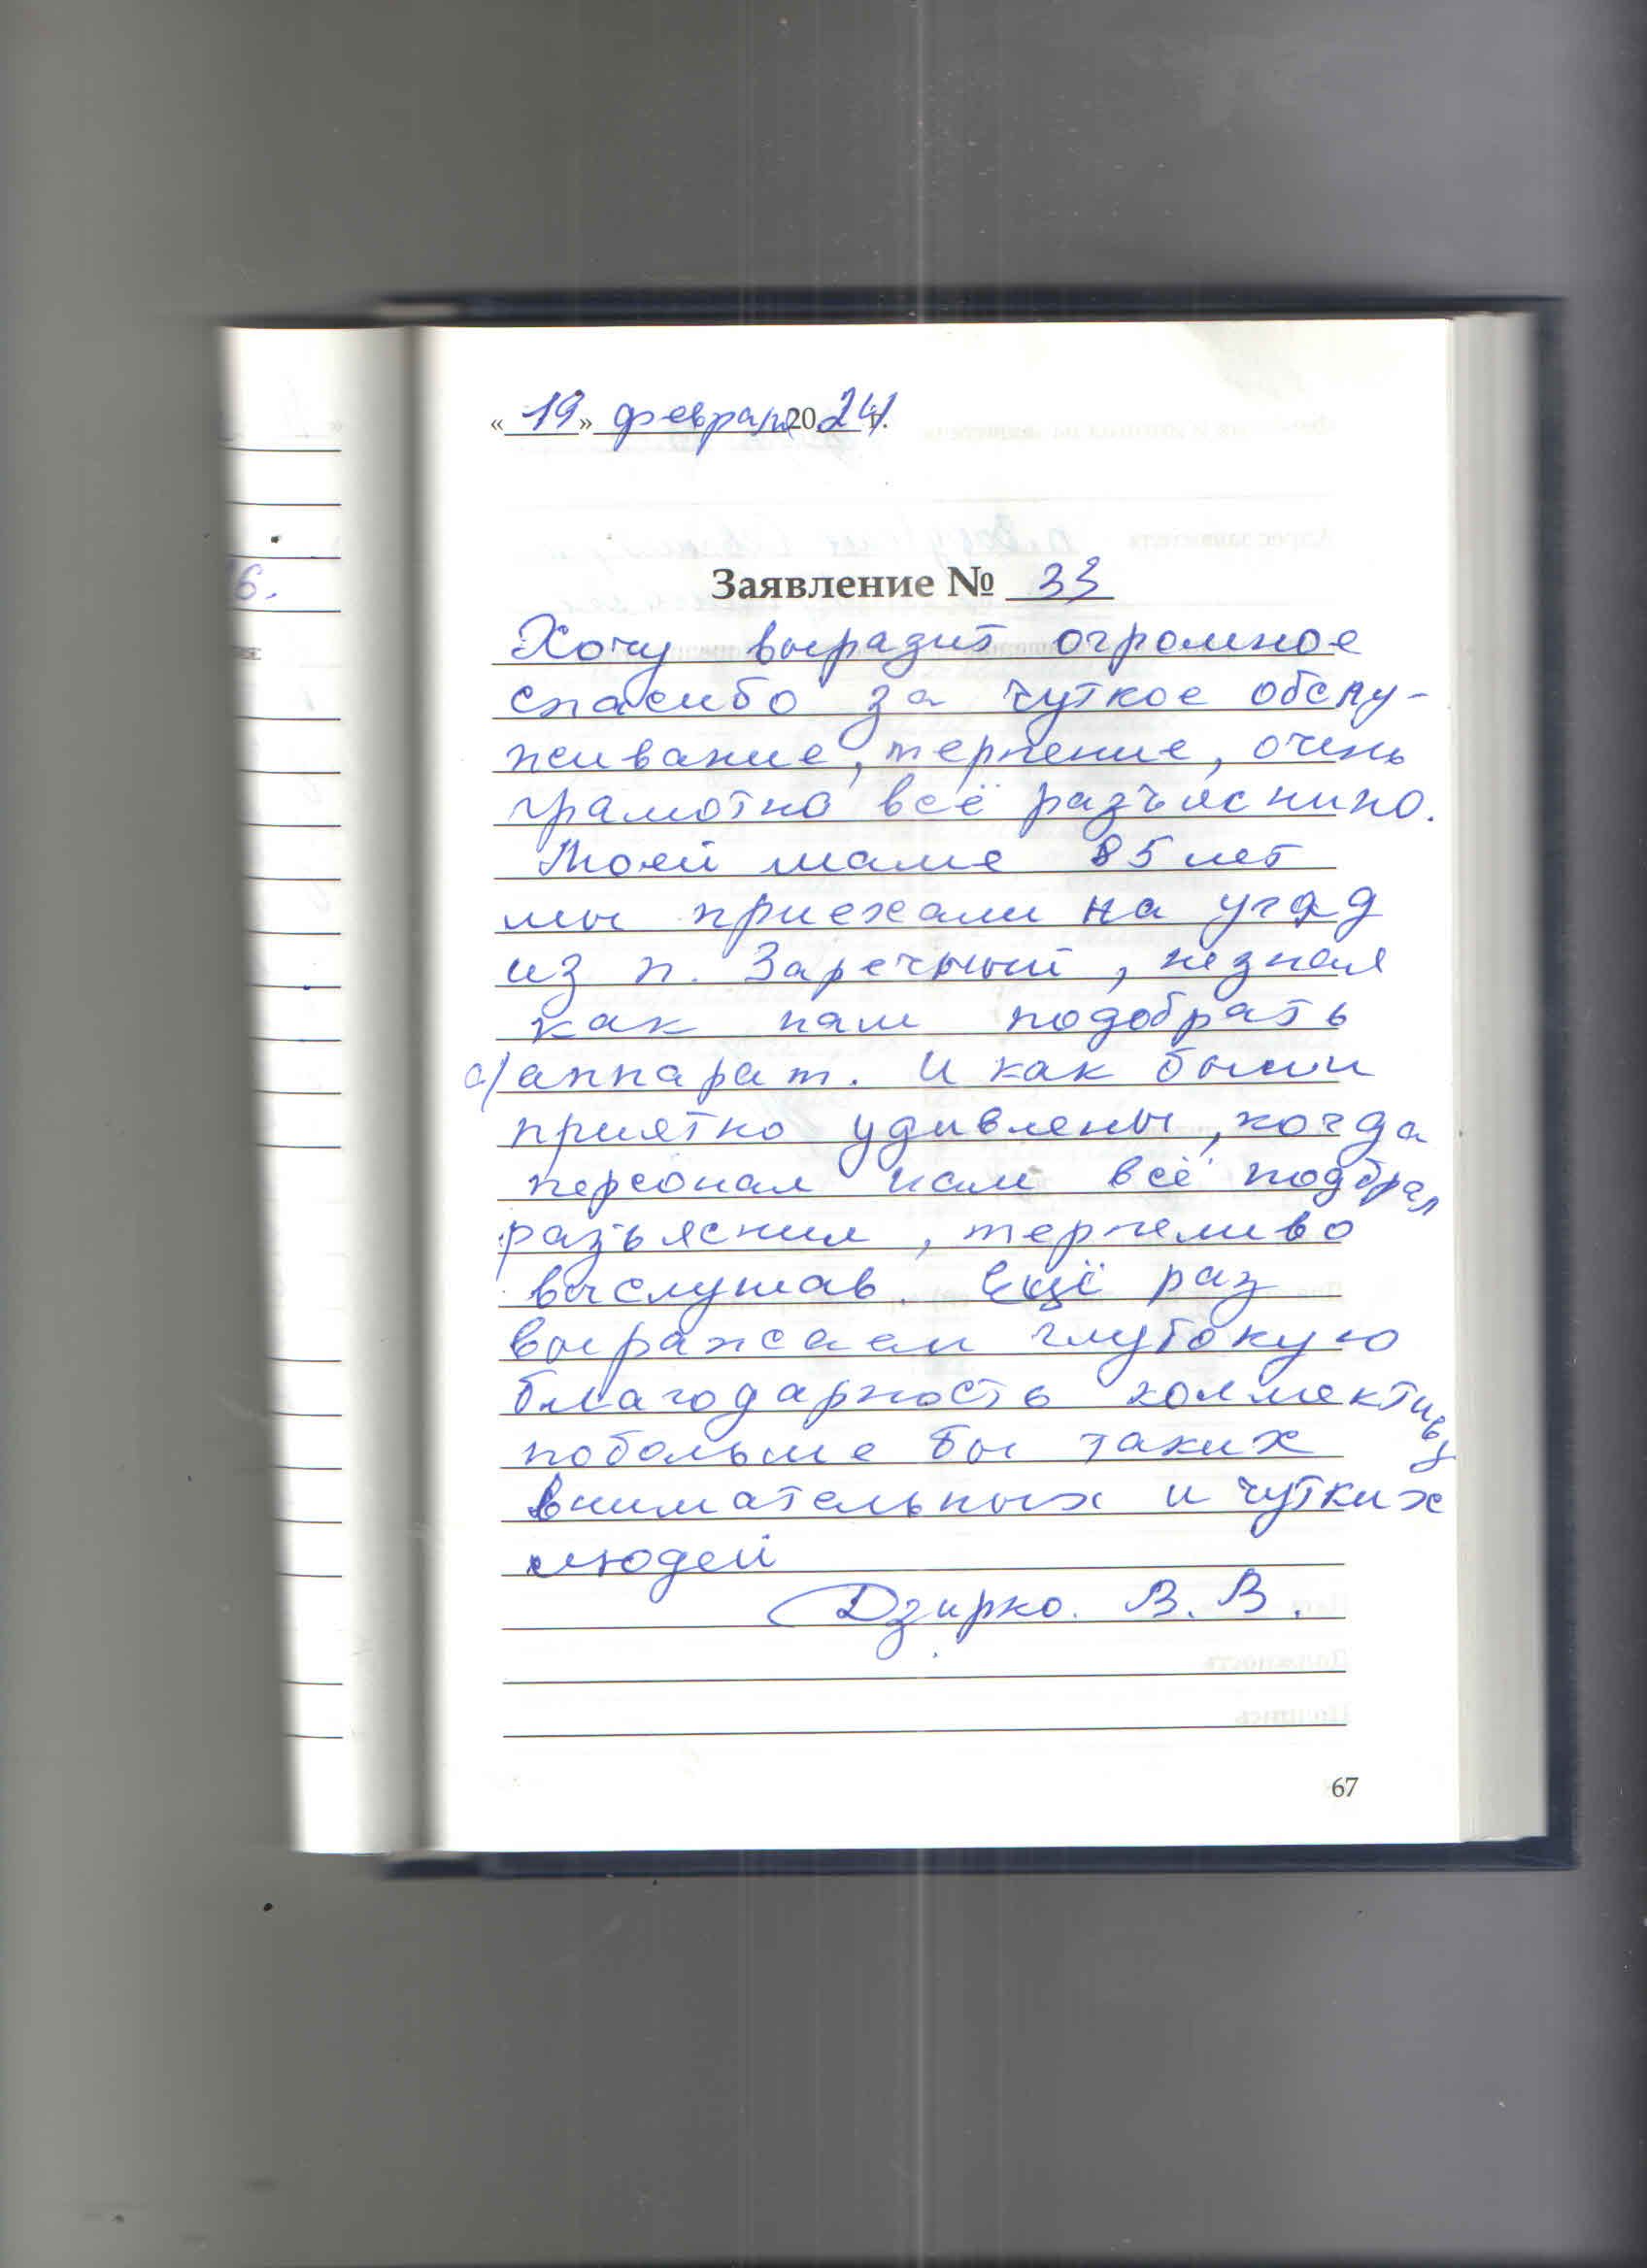 « 19 » февраля 20 24 г.
Заявление № 33
Хочу выразит огромное
спасибо за чуткое обслу-
живание, терпение, очень
грамотно всё разъяснило.
Моей маме 85 лет
мы приехали на угад
из п. Заречный, не зная
как нам подобрать
с/аппарат. И как были
приятно удивлены, когда
персонал нам всё подбрал
разъяснил, терпеливо
выслушав. Ещё раз
выражаем глубокую
благодарность коллективу
побольше бы таких
внимательных и чутких
людей
Дзирко. В. В.
67
6.